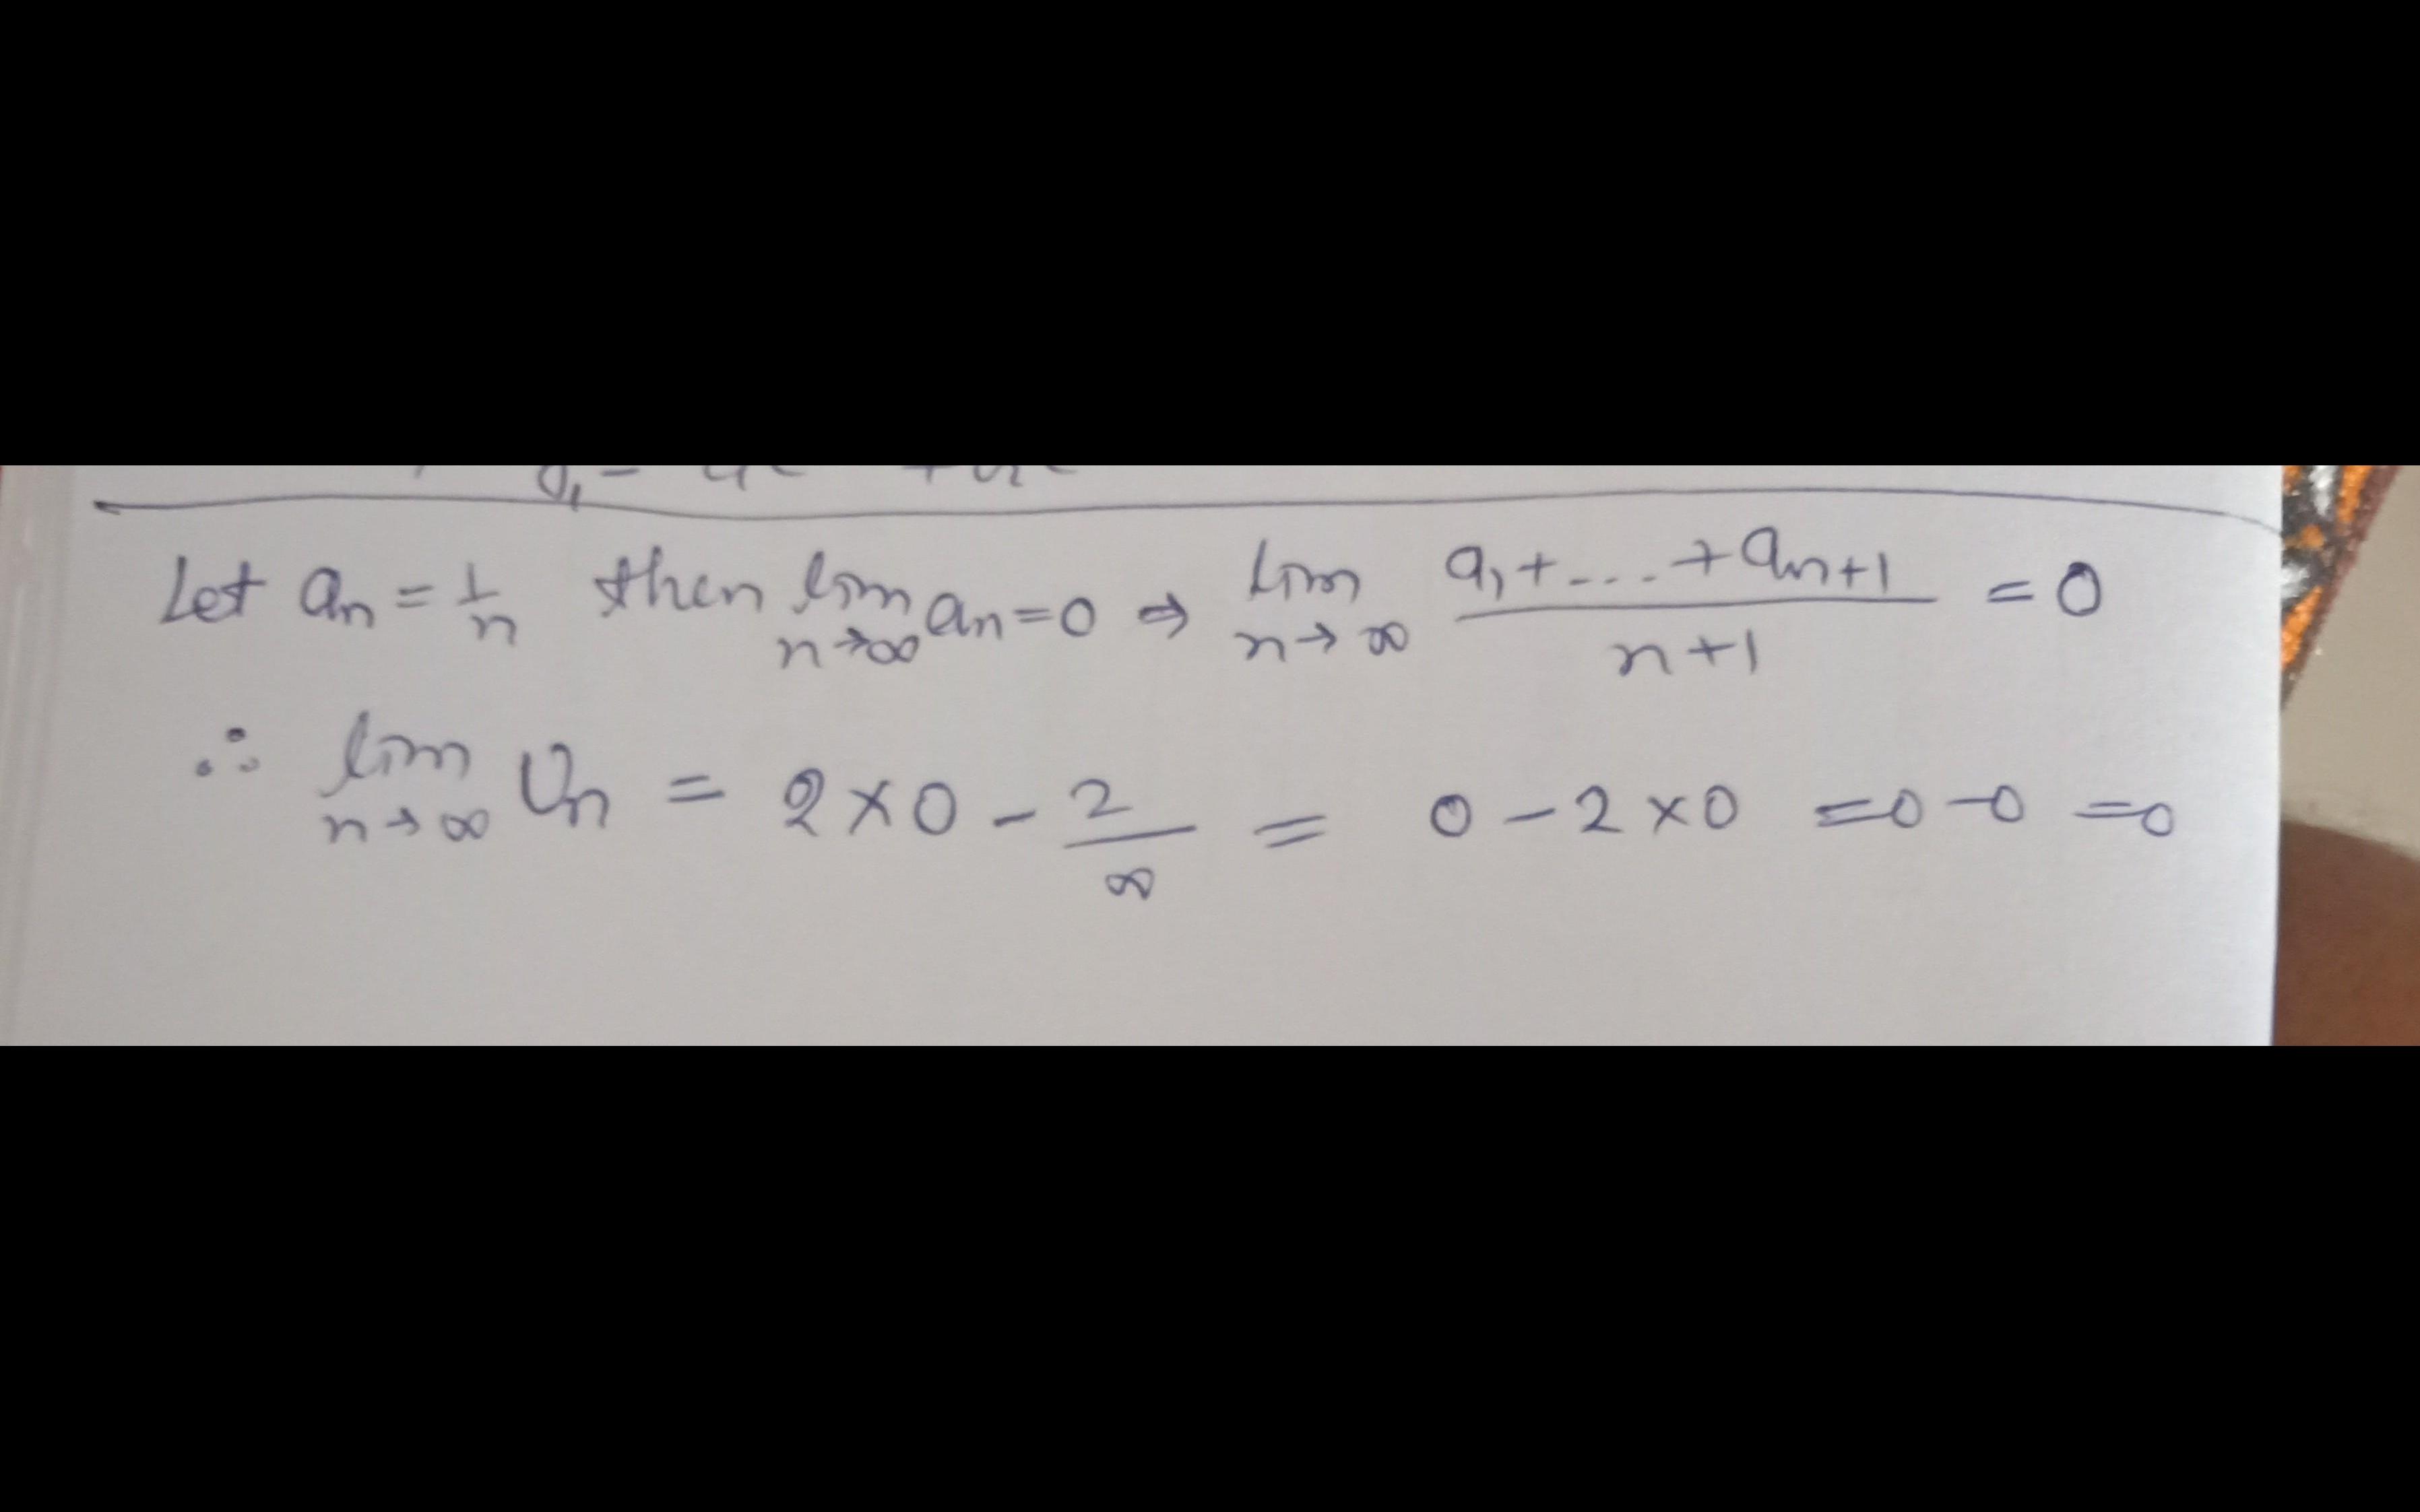 Let aₙ = 1/n then lim n→∞ aₙ = 0 ⇒ lim n→∞ (a₁ + ... + aₙ₊₁)/(n+1) = 0
∴ lim n→∞ Uₙ = 2×0 − 2/∞ = 0 − 2×0 = 0 − 0 = 0